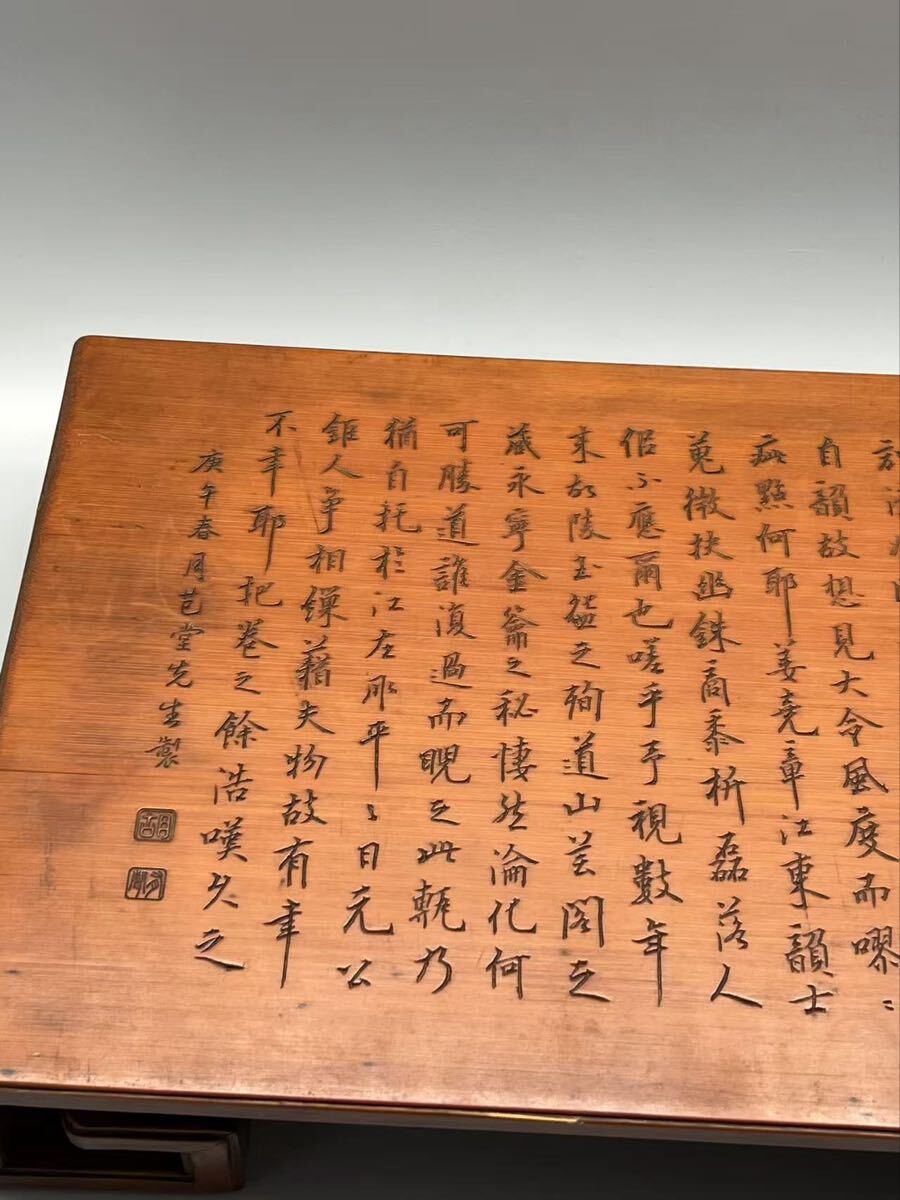 自韻故想見大令風度而嘐〻
疵點何耶姜堯章江東韻士
蒐微抉幽銖商黍析磊落人
侣不應爾也嗟乎乎視數年
来故陵玉盌之殉道山芸閣之
藏永寧金籥之秘悽然淪化何
可勝道誰復過而睨之此輒乃
猶自托於江左承平〻日元公
鉅人爭相繅藉夫物故有幸
不幸耶把卷之餘浩嘆久之
庚午春月芑堂先生製
胡